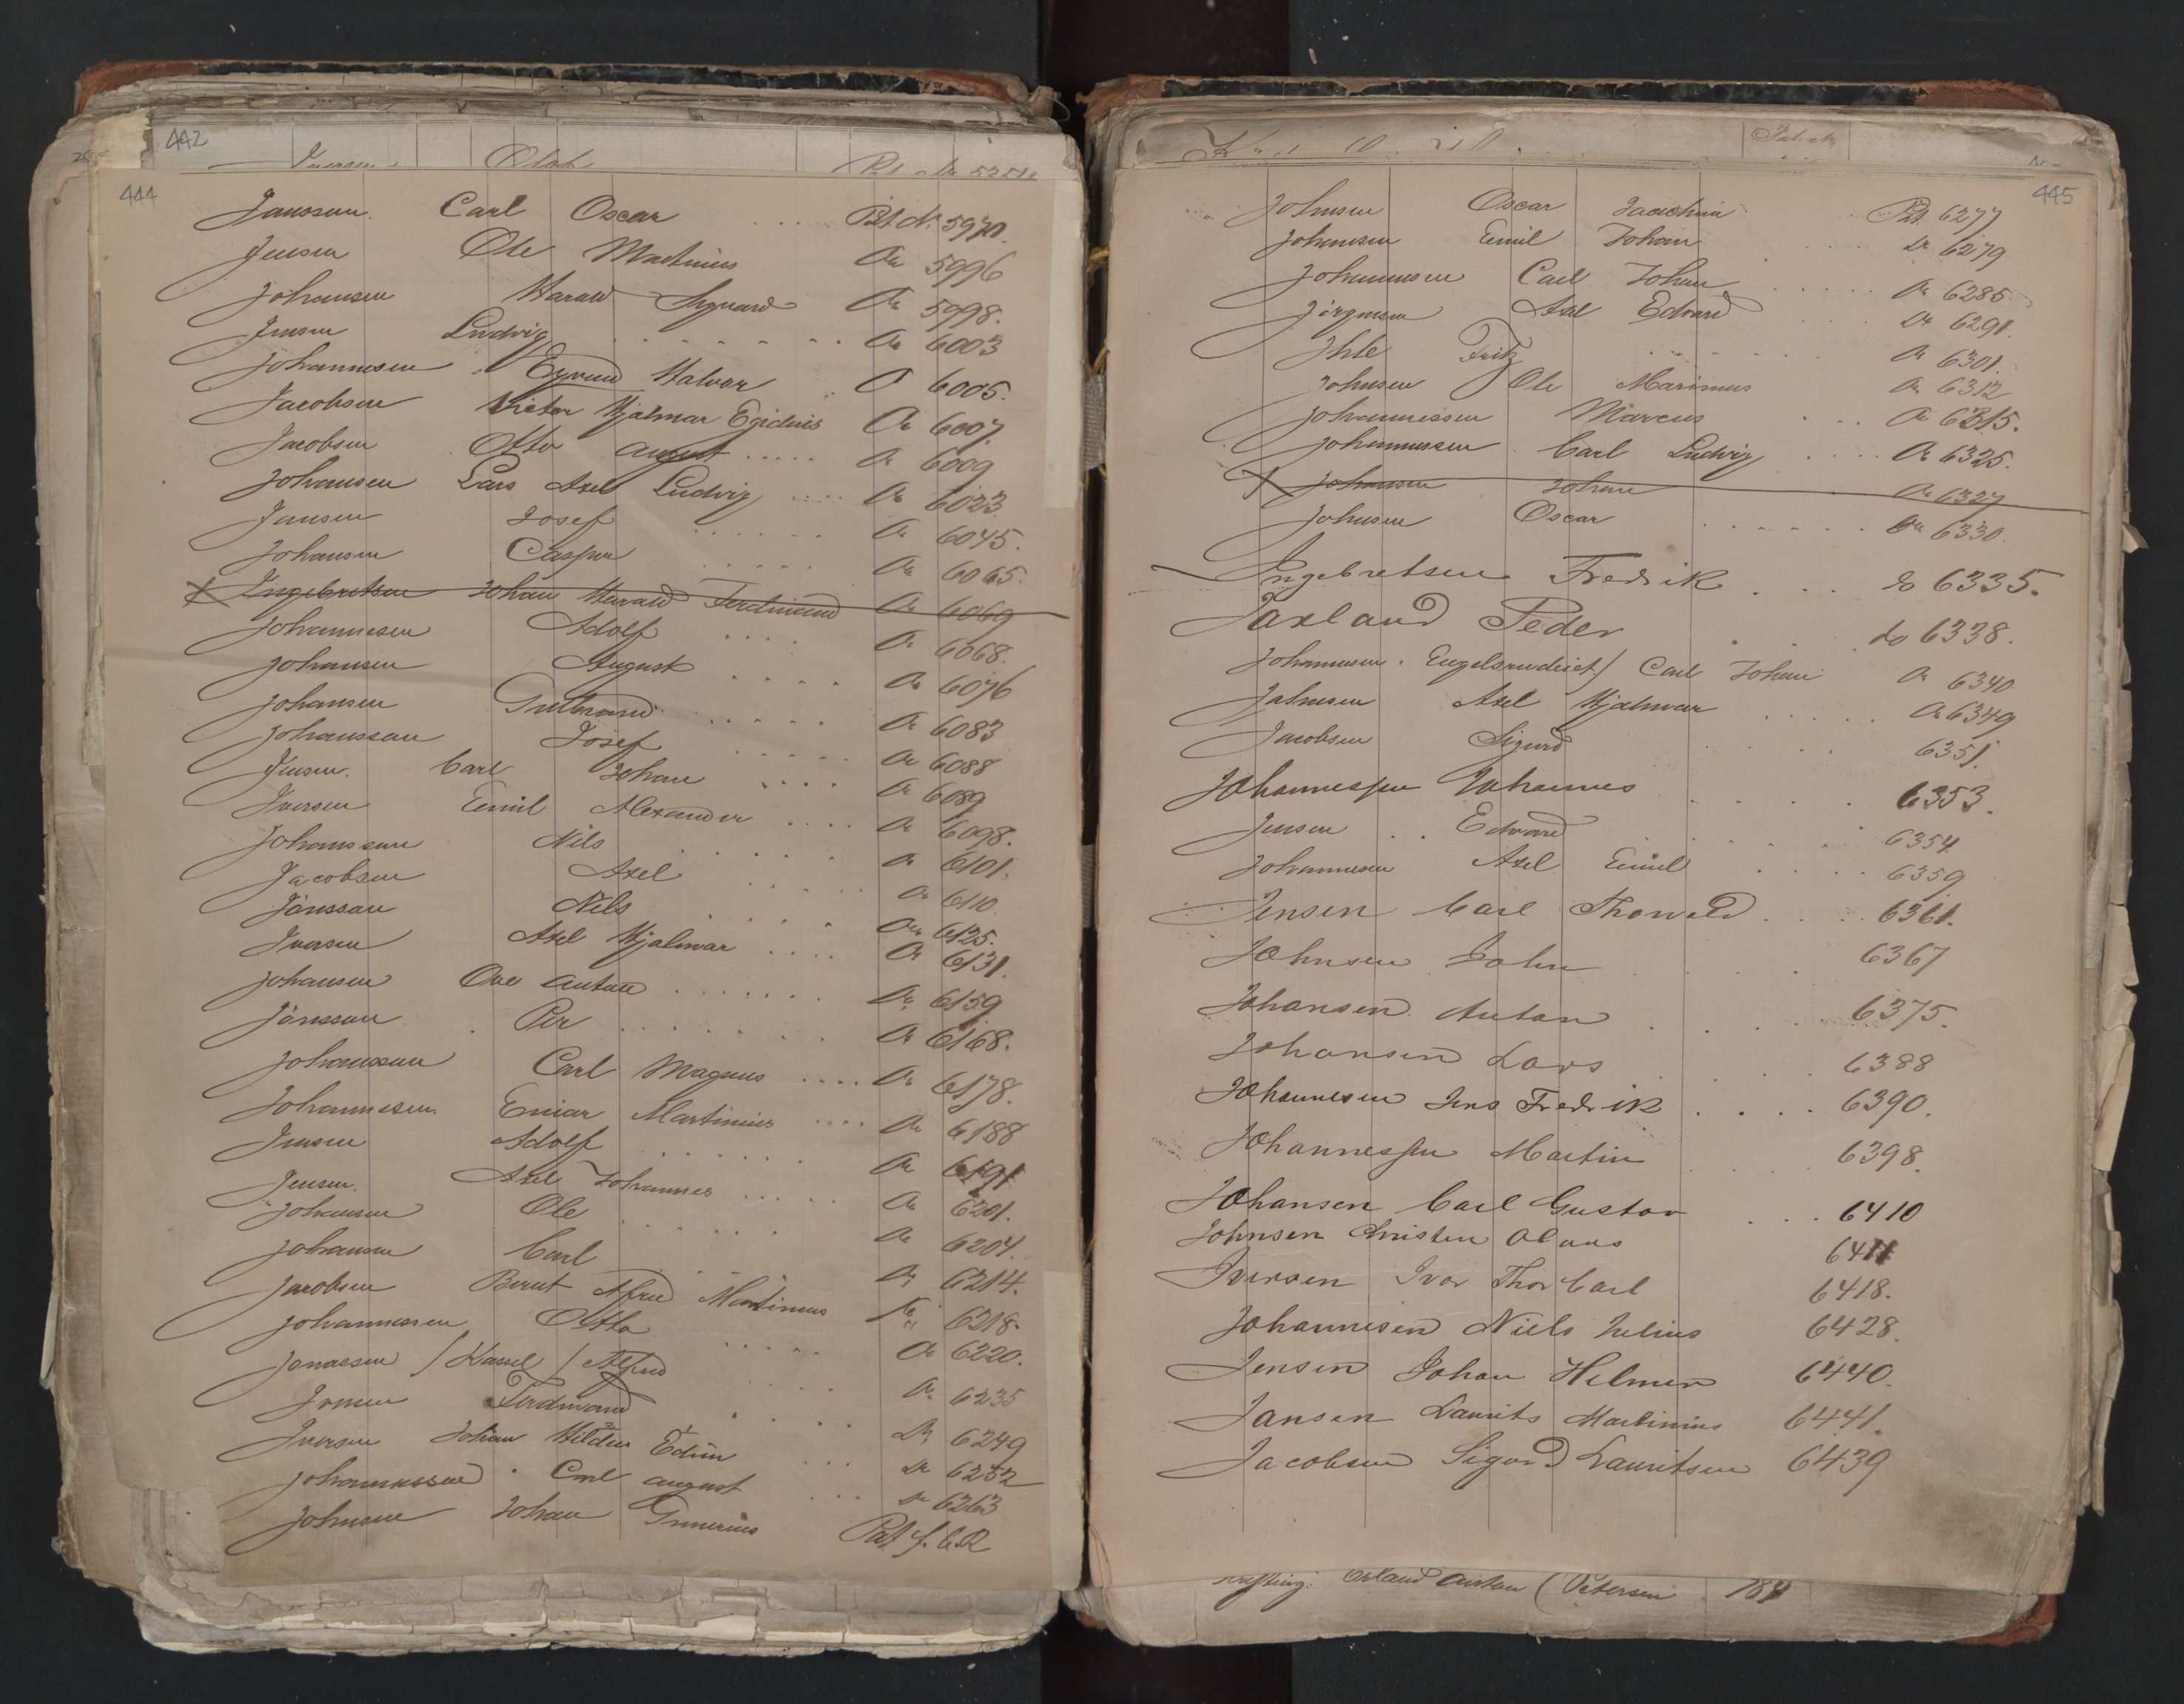 442
Iversen Olaf
444
Jansson. Carl Oscar . . . Pat. Nr. 5970.
Jensen Ole Martinius Do 5996
Johansen Harald Sigvard Do 5998.
Jensen Ludvig . . . . . . . . Do 6003
Johannesen Eyvind Halvor . Do 6005.
Jacobsen Victor Hjalmar Egidius Do 6007.
Jacobsen Otto August . . . . . Do 6009
Johansen Lars Axel Ludvig . . . . Do 6023
Jansen Josef . . . . . . Do 6045.
Johansen Casper . . . . . Do 6065.
X Ingebretsen Johan Harald Ferdinand Do 6069
Johannesen Adolf . . . . Do 6068.
Johansen August . . . . Do 6076
Johansen Gulbrand . . . . . Do 6083
Johansson Josef . . . . Do 6088
Jensen. Carl Johan . . . . Do 6089
Iversen Emil Alexander . . . . Do 6098.
Johanssen Nils . . . . . Do 6101.
Jacobsen Axel . . . . . Do 6110.
Jönsson Nils . . . . Do 6125.
Iversen Axel Hjalmar . . . . Do 6131.
Johansen Ove Anton . . . . . . . Do 6159
Jönsson . Per . . . . . . Do 6168.
Johansson Carl Magnus . . . . Do 6178.
Johannesen Einar Martinius . . . . Do 6188
Jensen Adolf . . . . . . Do 6191
Jensen. Axel Johannes . . . . . Do 6201.
Johansen Ole . . . . . Do 6204.
Johansen Carl . . . . Do 6214.
Jacobsen Bernt Alfred Martinius Do 6218.
Johannessen Otto . . . . . Do 6220.
Jonassen / Karsel / Alfred . . . . Do 6235
Ferdinand . . . . Do 6249
Iversen Johan Hildus Edvin . . . Do 6252
Johannessen . Carl August . . . Do 6263
Johnsen Johan Gunerius Pat f. 62
445
Johnsen Oscar Joachim Pat. 6277
Johansen Emil Johan . . . . Do 6279
Johannesen Carl Johan . . . . . Do 6285
Jörgensen Axel Edvard . . . . Do 6291.
Ihle Fritz . . . . . Do 6301.
Johnsen Ole Marinius Do 6312
Johannessen Marcus . . . Do 6315.
Johannessen Carl Ludvig . . . . Do 6325.
X Johansen Johan Do 6327
Johnsen Oscar . . . . . . Do 6330.
Ingebretsen Fredrik . . . do 6335.
Jaxland Peder . . . do 6338.
Johannesen . Engelsrudeiet / Carl Johan Do 6340
Johnsen Axel Hjalmar . . . . . Do 6349
Jacobsen Sigurd . . . . 6351.
Johannessen Johannes . . . . 6353.
Jensen . . Edvard . . . . 6354
Johannesen Axel Emil . . . . 6359
Jensen Carl Thorvald . . . . 6361.
Johnsen John . . . 6367
Johansen Anton . . . . 6375.
Johansen Lars . . . . 6388
Johannesen Jens Fredrik . . . . 6390.
Johannessen Martin . . . . 6398.
Johansen Carl Gustav . . . 6410
Johnsen Christen Olaus 6411
Iversen Ivar Thor Carl 6418.
Johannesen Niels Julius 6428.
Jensen Johan Helmer 6440.
Jansen Laurits Martinius 6441.
Jacobsen Sigurd Lauritsen 6439
Erland Anton (Petersen 784